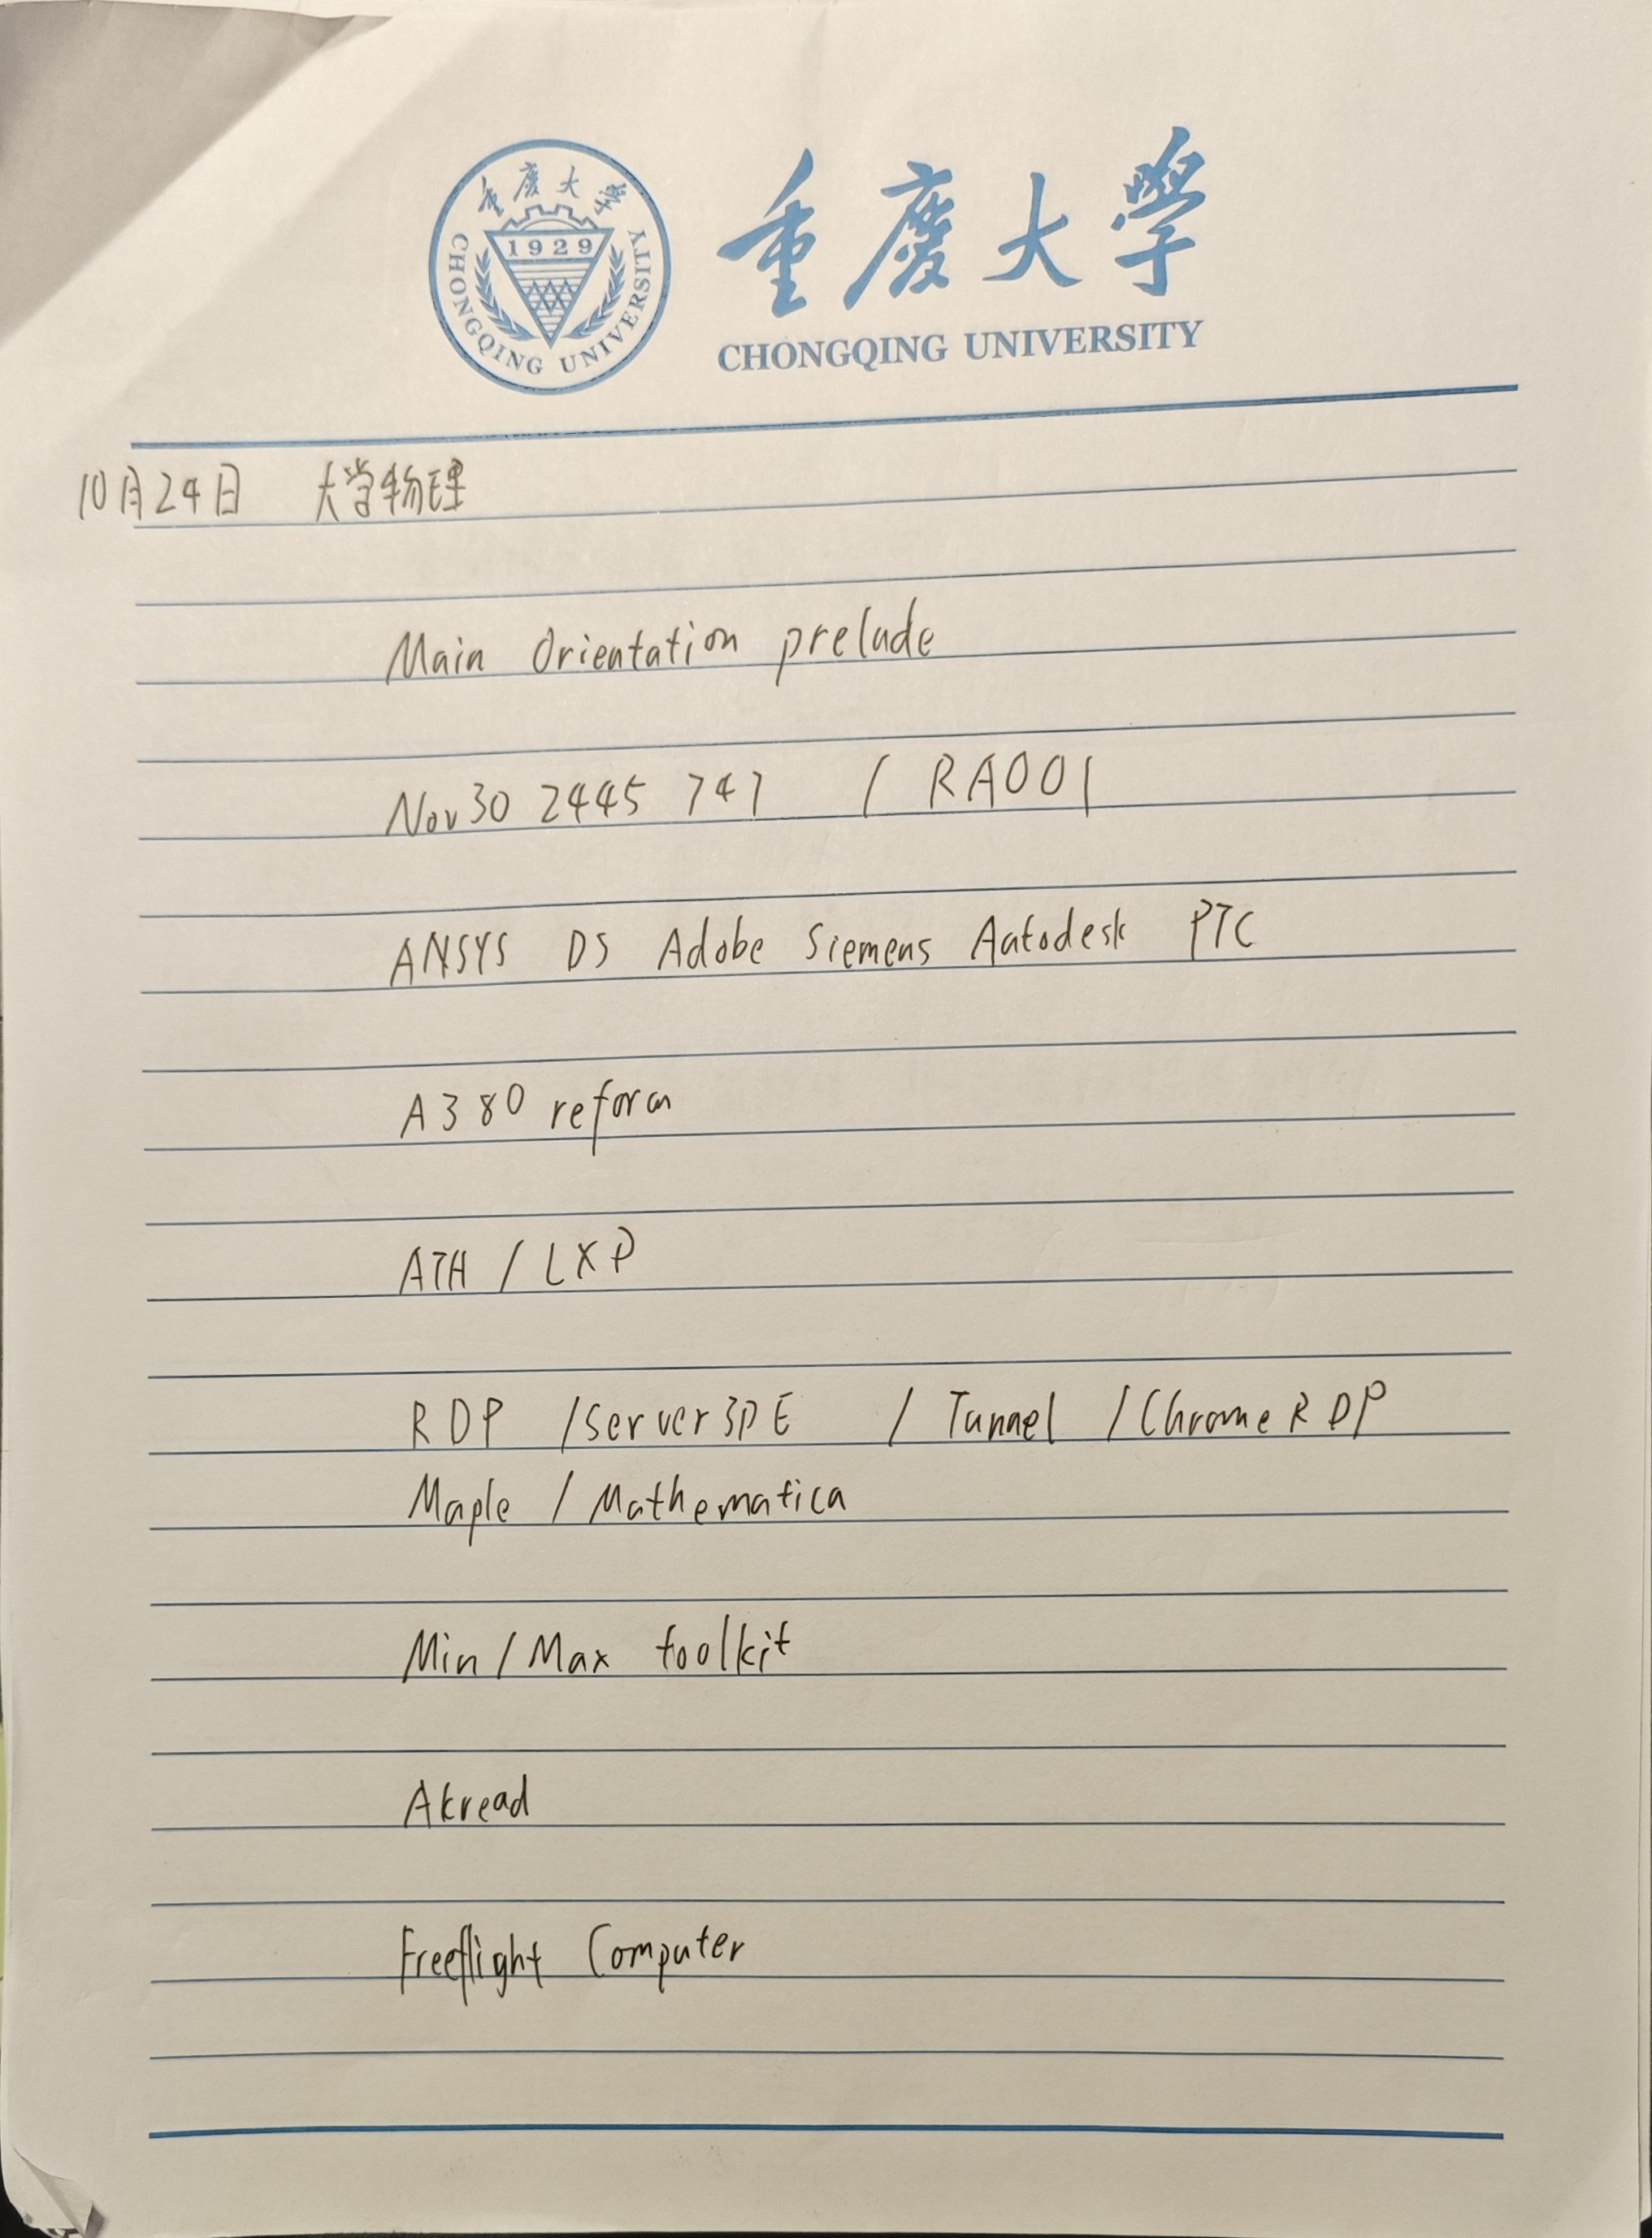 重慶大學
1929
CHONGQING UNIVERSITY
重慶大學
CHONGQING UNIVERSITY
10月24日 大学物理
Main Orientation prelude
Nov30 2445 747 / RA001
ANSYS DS Adobe Siemens Autodesk PTC
A380 reform
ATH / LXP
RDP /Server3DE / Tunnel /ChromeRDP
Maple / Mathematica
Min/Max toolkit
Akread
Freeflight Computer